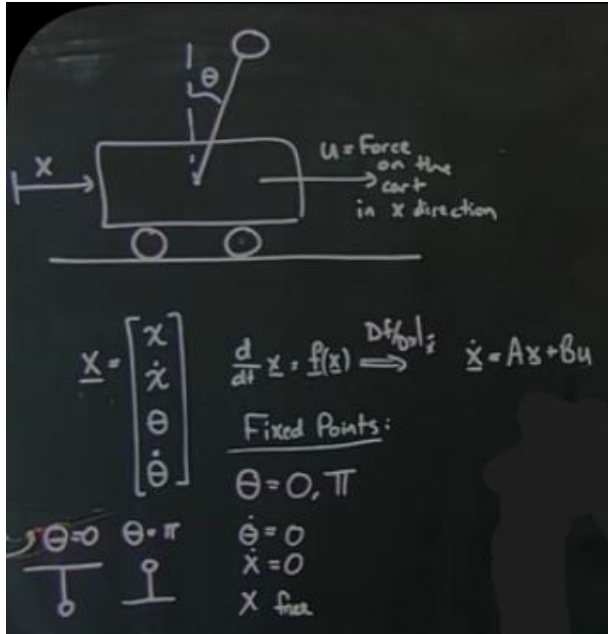 θ
x
u = Force
on the
cart
in x direction
x = [x ẋ θ θ̇]
d/dt x = f(x) ⟹ Df/Dx|x̄ ẋ = Ax + Bu
Fixed Points:
θ = 0, π
θ=0 θ=π
θ̇ = 0
ẋ = 0
x free